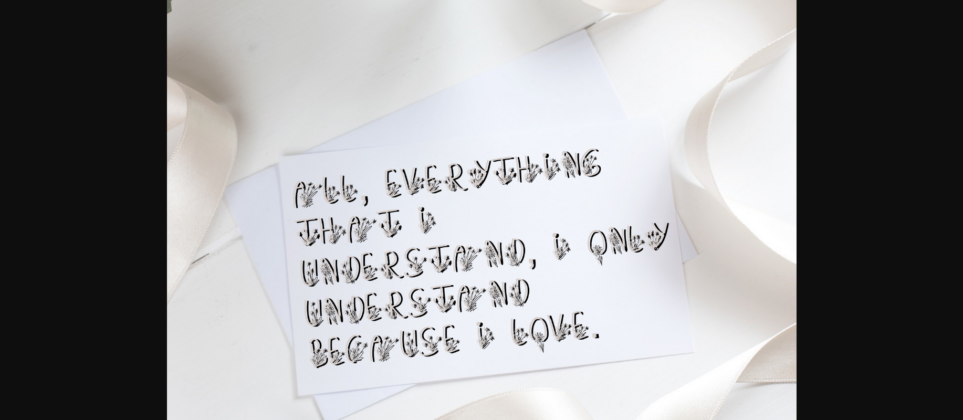 ALL, EVERYTHING
THAT i
UNDERSTAND, i ONLY
UNDERSTAND
BECAUSE i LOVE.